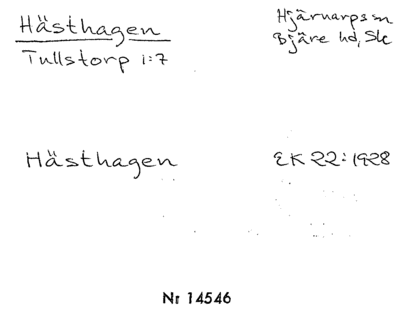 Hästhagen
Tullstorp 1:7
Hjärnarps sn
Bjäre hd, Sk
Hästhagen
EK 22: 1928
Nr 14546